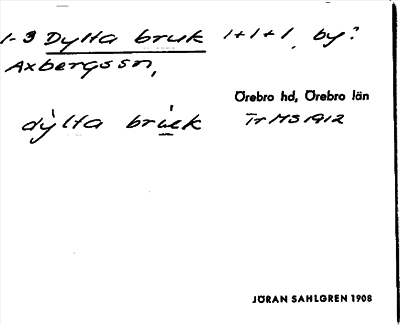 1-3 Dylta bruk 1+1+1, by?
Axbergssn,
Örebro hd, Örebro län
dỳlta brùk
JÖRAN SAHLGREN 1908